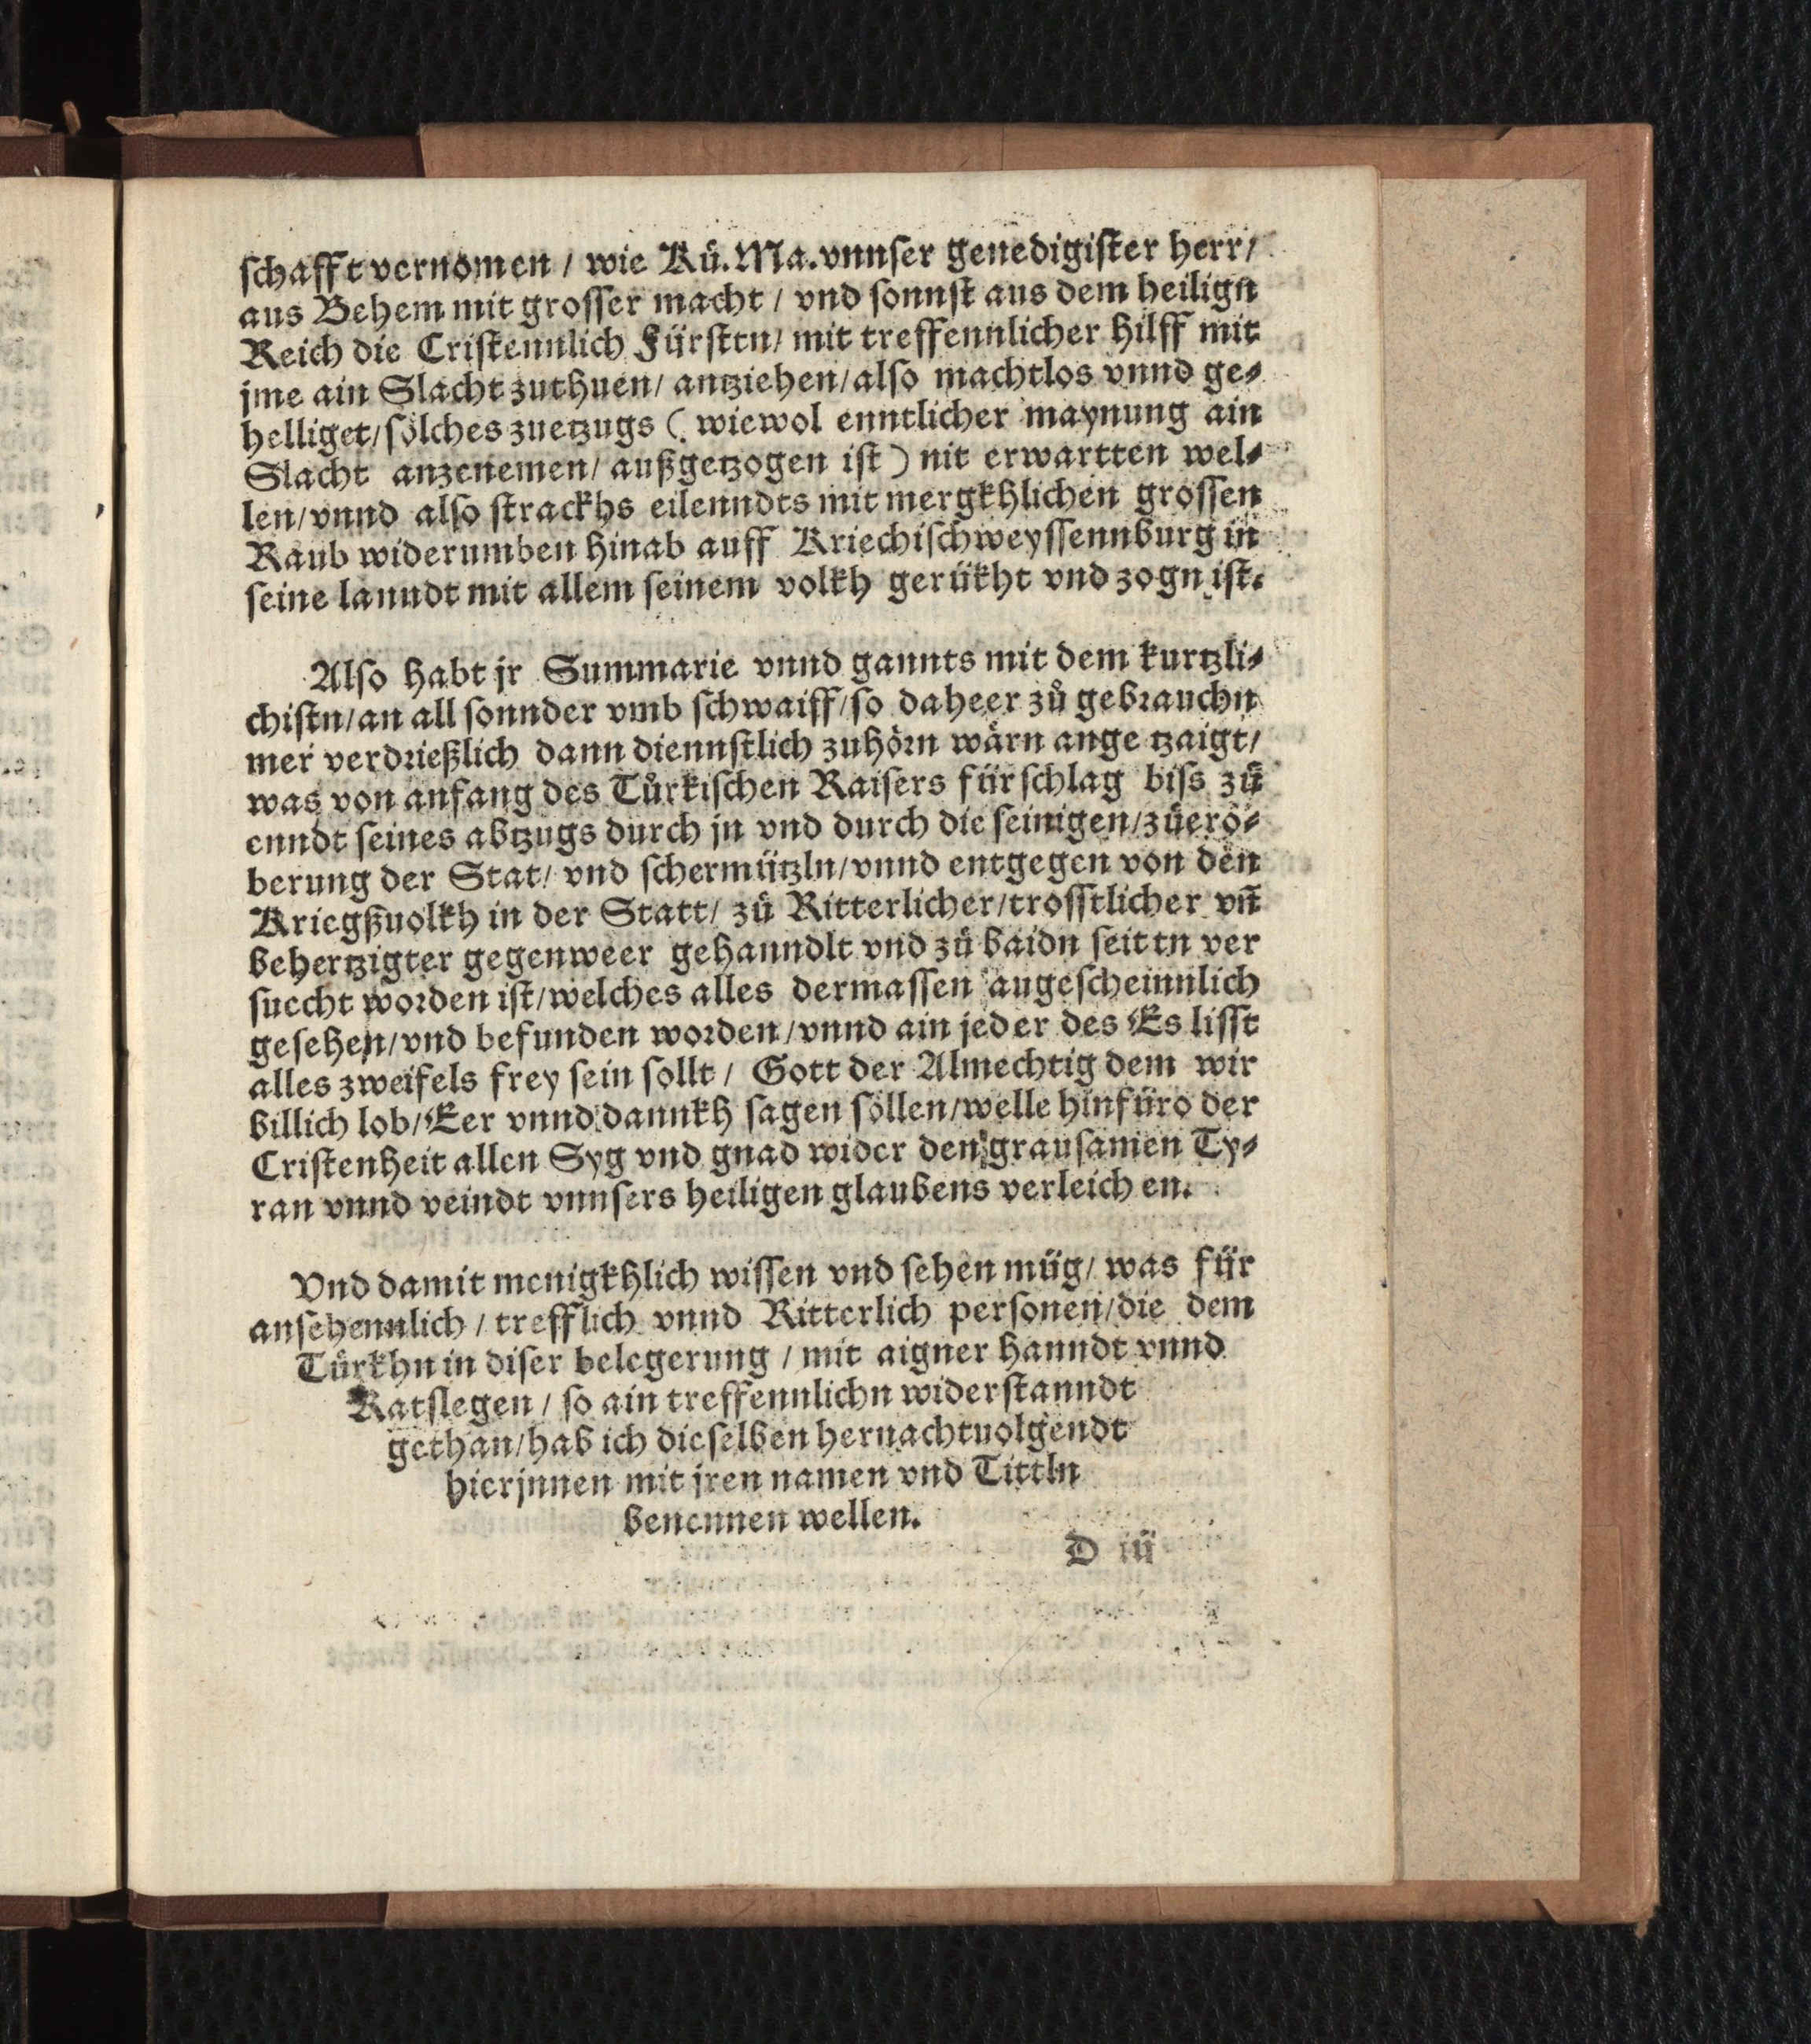 ſchafft vernomen / wie Kü. Ma. vnnſer genedigiſter herr/
aus Behem mit groſſer macht / vnd ſonnſt aus dem heilign
Reich die Criſtennlich Fürſttn/ mit treffennlicher hilff mit
jme ain Slacht zuthuen/ antziehen/ alſo machtlos vnnd ge⸗
helliget/ ſölches zuetzugs (wiewol enntlicher maynung ain
Slacht anzenemen/ außgetzogen iſt) nit erwartten wel⸗
len/ vnnd alſo ſtrackhs eilenndts mit mergkhlichen groſſen
Raub widerumben hinab auff Kriechiſchweyſſennburg in
ſeine lanndt mit allem ſeinem volkh gerükht vnd zogn iſt.
Alſo habt jr Summarie vnnd gannts mit dem kurtzli⸗
chiſtn/ an all ſonnder vmb ſchwaiff/ ſo daheer zů gebꝛauchn
mer verdꝛießlich dann diennſtlich zuhöꝛn wärn ange tzaigt/
was von anfang des Tůrkiſchen Kaiſers fürſchlag biſs zů
enndt ſeines abtzugs durch jn vnd durch die ſeinigen/ zůerö⸗
berung der Stat/ vnd ſchermützln/ vnnd entgegen von den
Kriegßuolkh in der Statt/ zů Ritterlicher/ troſſtlicher vñ
behertzigter gegenweer gehanndlt vnd zů baidn ſeittn ver
ſuecht woꝛden iſt/ welches alles dermaſſen augeſcheinnlich
geſehen/ vnd befunden woꝛden/ vnnd ain jeder des Es liſſt
alles zweifels frey ſein ſollt / Gott der Almechtig dem wir
billich lob/ Eer vnnd dannkh ſagen ſöllen/ welle hinfüro der
Criſtenheit allen Syg vnd gnad wider den grauſamen Ty⸗
ran vnnd veindt vnnſers heiligen glaubens verleich en.
Vnd damit menigkhlich wiſſen vnd ſehen müg/ was für
anſehennlich / trefflich vnnd Ritterlich perſonen/ die dem
Tůrkhn in diſer belegerung / mit aigner hanndt vnnd
Ratſlegen / ſo ain treffennlichn widerſtanndt
gethan/ hab ich dieſelben hernachtuolgendt
hierjnnen mit jren namen vnd Tittln
benennen wellen.
D iij